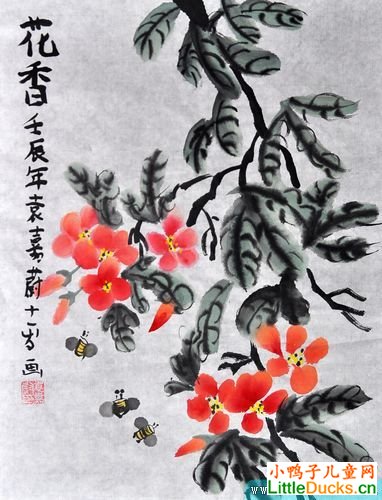 花香
壬辰年袁嘉蔚十一岁画
小鸭子儿童网
LittleDucks.cn